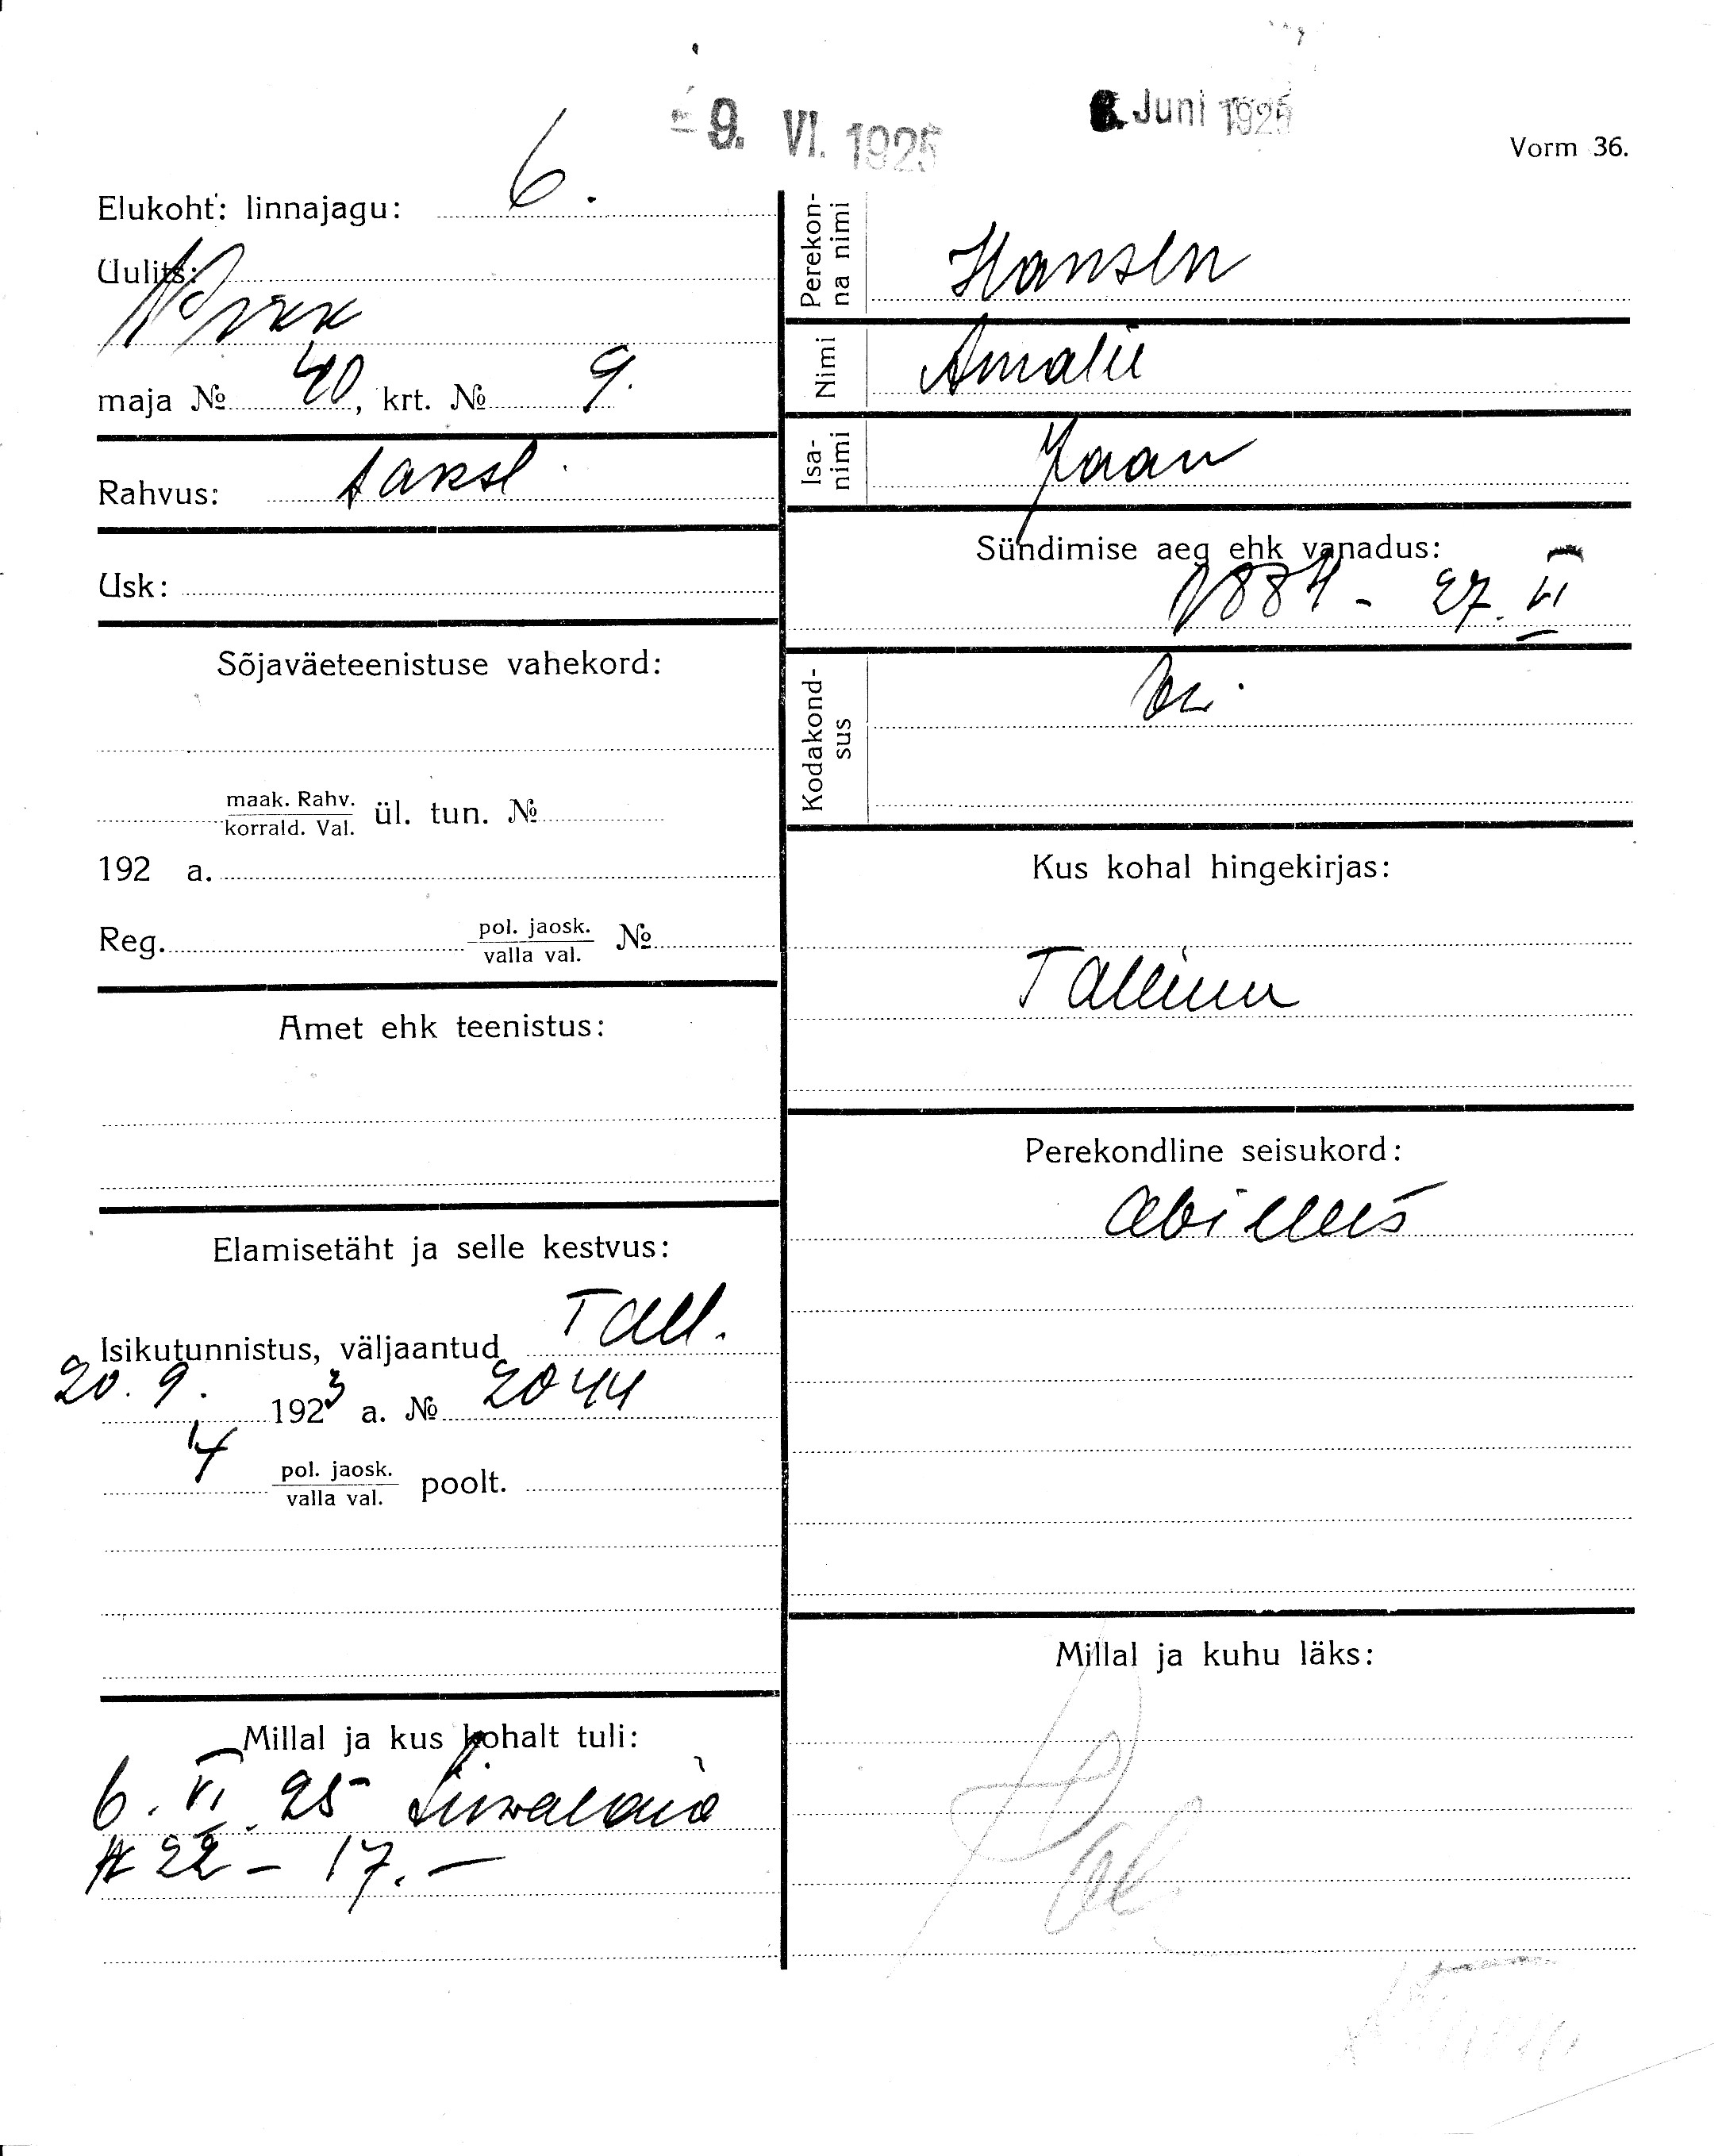 9. VI. 1925
8. Juni 1925
Vorm 36.
Elukoht: linnajagu: 6.
Uulits:
maja № 40, krt. № 9.
Rahvus: saksl.
Usk:
Sõjaväeteenistuse vahekord:
maak. Rahv.
korrald. Val. ül. tun. №
192 a.
Reg. pol. jaosk.
valla val. №
Amet ehk teenistus:
Elamisetäht ja selle kestvus:
Isikutunnistus, väljaantud Tall.
20. 9. 1923 a. № 2044
4 pol. jaosk.
valla val. poolt.
Millal ja kus kohalt tuli:
6. VI. 25 Liivalaia
№ 22 - 17. -
Perekon-
na nimi Hansen
Nimi Amalie
Isa-
nimi Jaan
Sündimise aeg ehk vanadus:
1884 - 27. VI
Kodakond-
sus
Kus kohal hingekirjas:
Tallinn
Perekondline seisukord:
abielus
Millal ja kuhu läks: